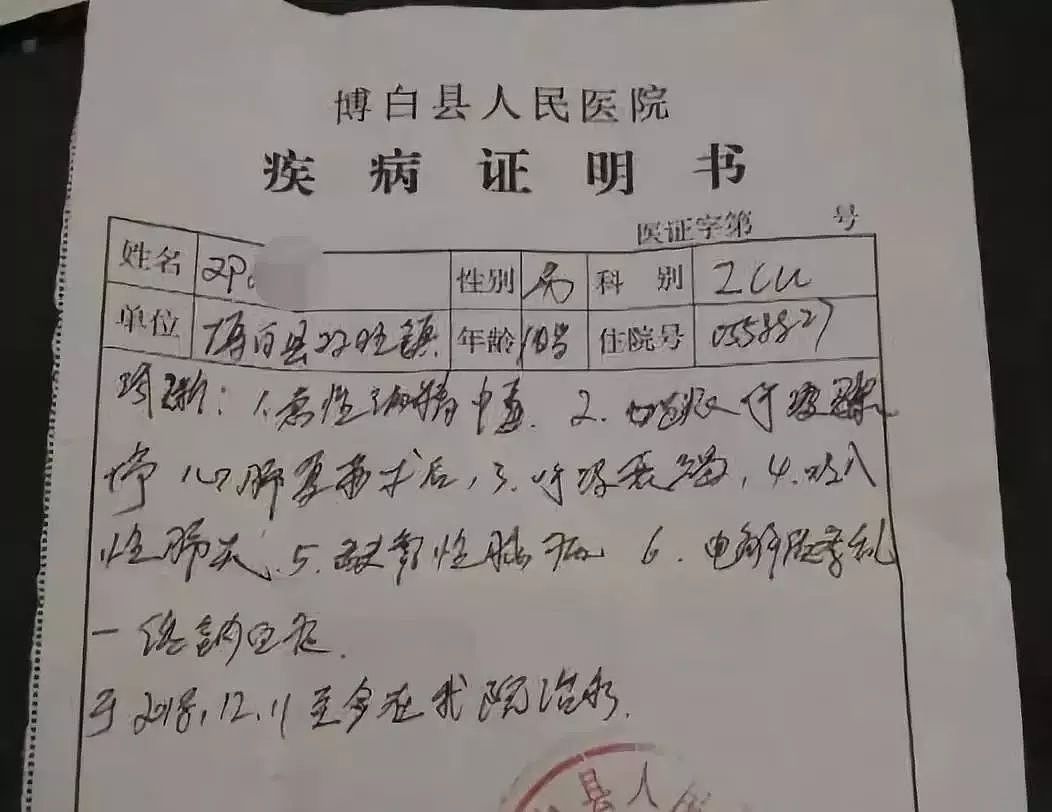 博白县人民医院
疾病证明书
医证字第 号
姓名 性别 男 科别 ICU
单位 博白县双旺镇 年龄 住院号 0558827
诊断：1.急性酒精中毒.2.呼吸心
停心肺复苏术后,3.呼吸衰竭,4.吸入
性肺炎.5.缺氧性脑病 6.电解质紊乱
一低钠血症.
于2018.12.11至今在我院治疗.
县人